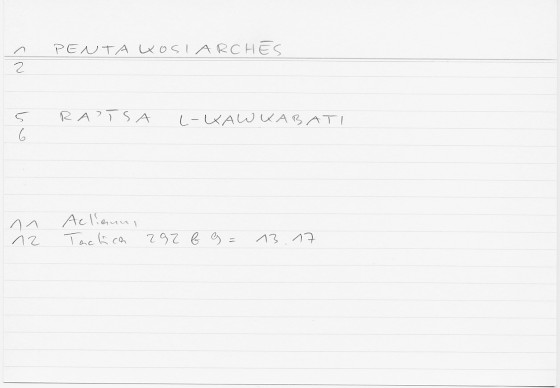 1 PENTAKOSIARCHĒS
2
5 RA'ĪSA L-KAWKABATI
6
11 Aelianus,
12 Tactica 292 b 9 = 13.17